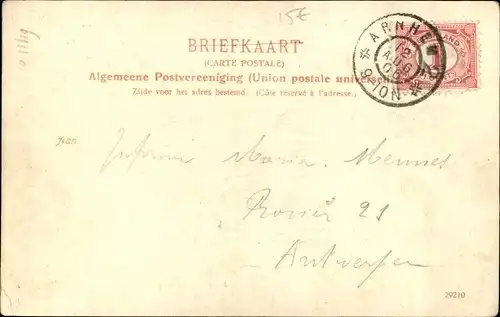 15€
BRIEFKAART
(CARTE POSTALE)
Algemeene Postvereeniging (Union postale universelle)
Zijde voor het adres bestemd. (Côté réservé à l'adresse.)
ARNHEM
AUG
Maria Mennes
Rosier 21
Antwerpen
29210